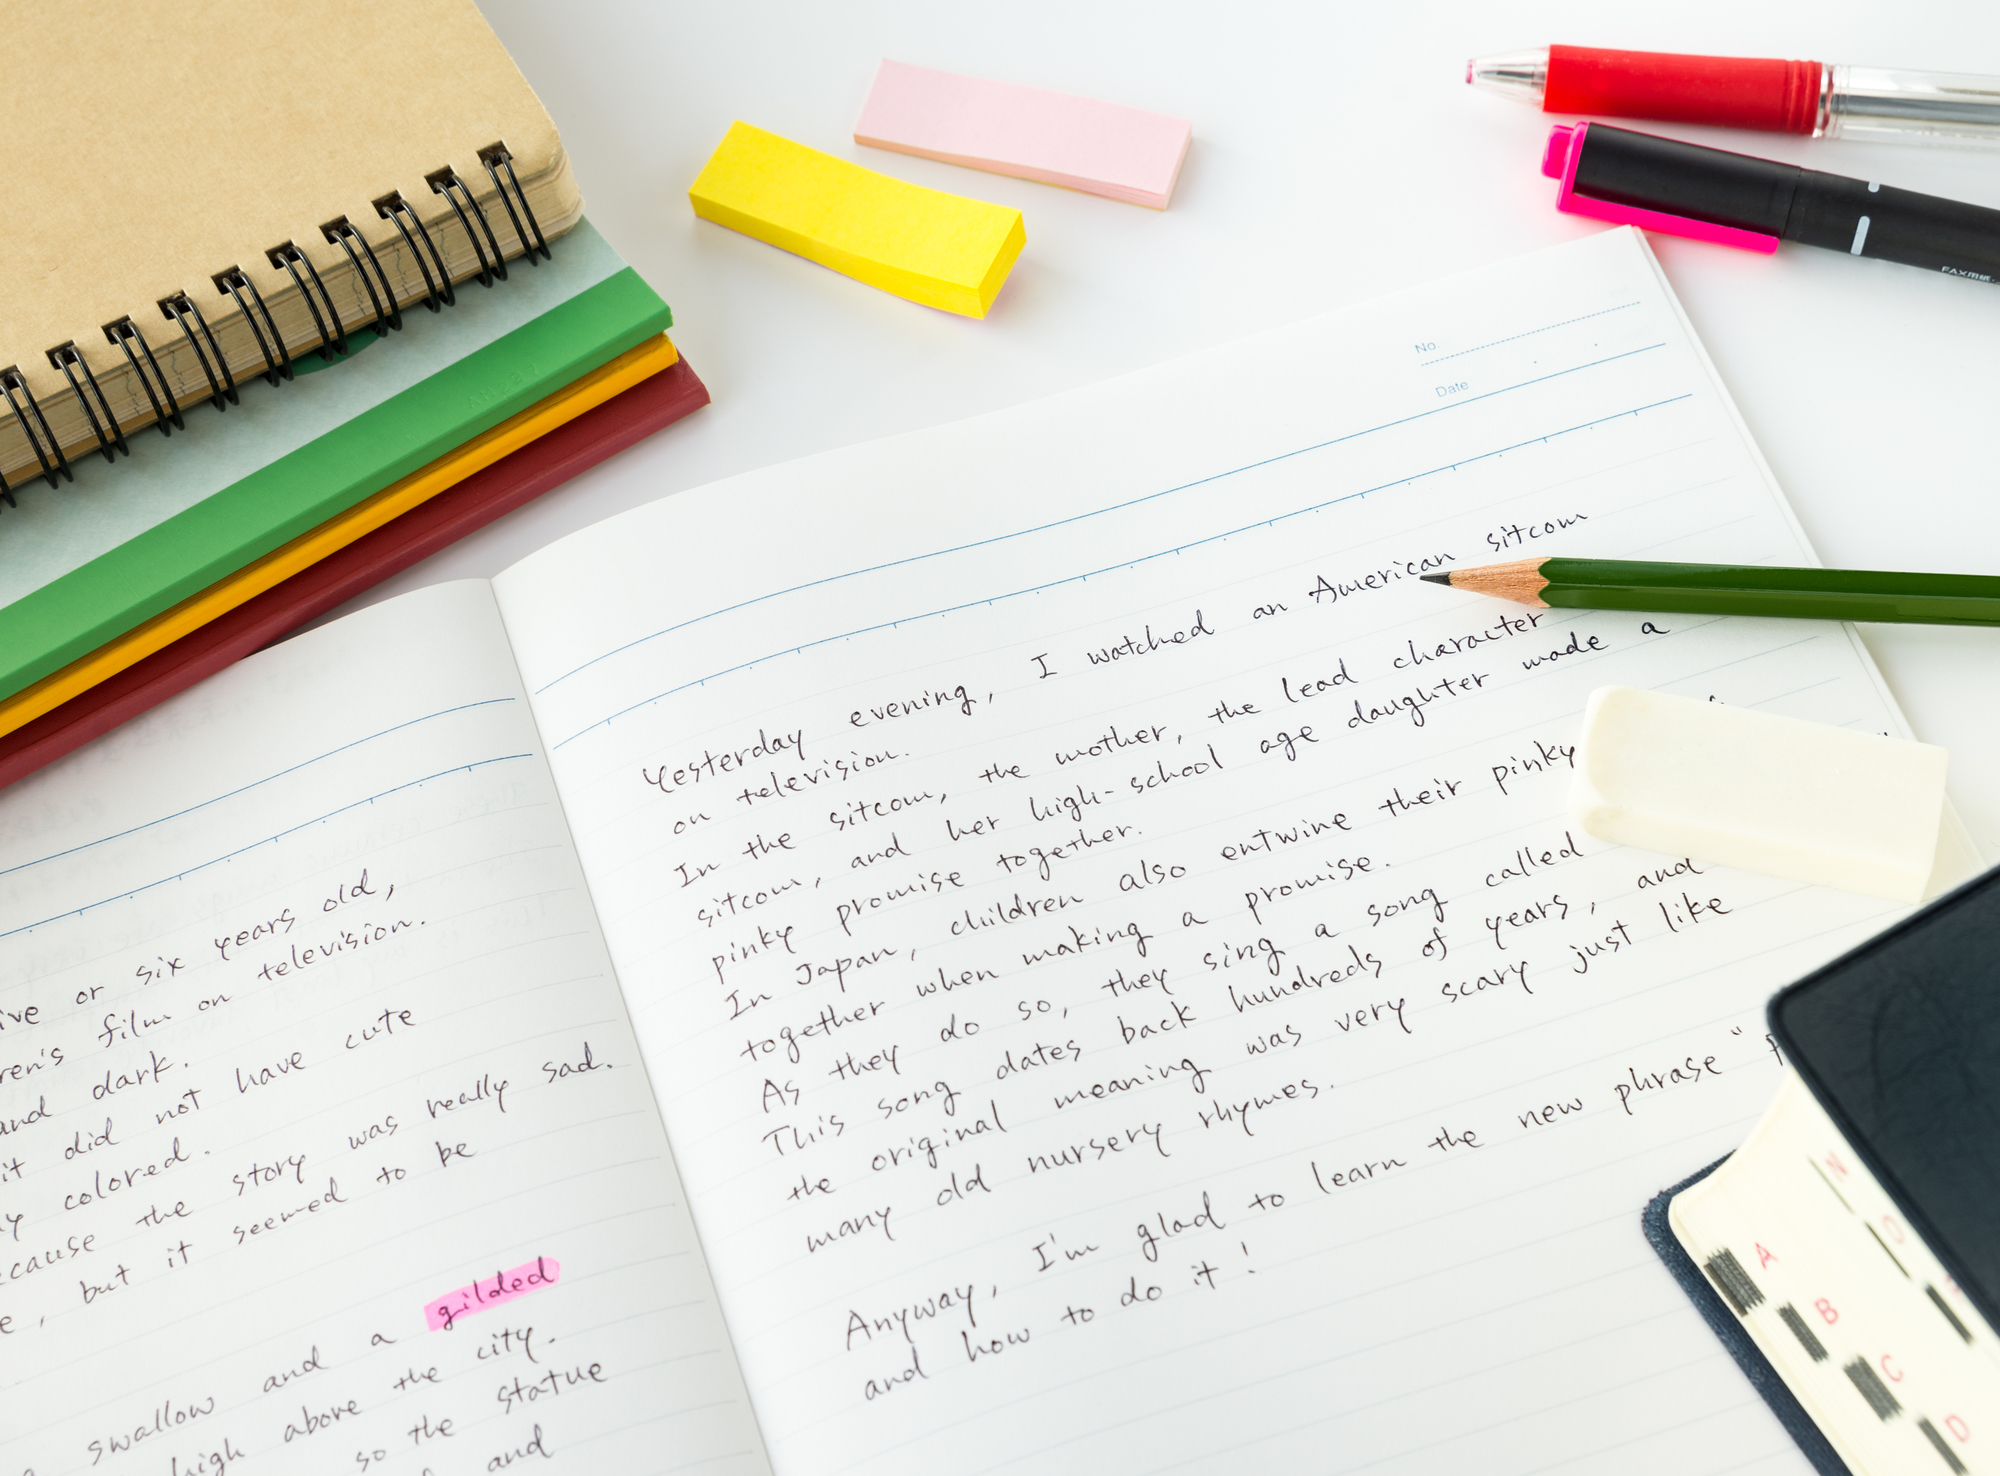 FAX用紙
No.
Date
Yesterday evening, I watched an American sitcom
on television.
In the sitcom, the mother, the lead character
sitcom, and her high-school age daughter made a
pinky promise together.
In Japan, children also entwine their pinky
together when making a promise.
As they do so, they sing a song called
This song dates back hundreds of years, and
the original meaning was very scary just like
many old nursery rhymes.
Anyway, I'm glad to learn the new phrase "
and how to do it!
or six years old,
film on television.
and dark.
it did not have cute
colored.
the story was really sad.
, but it seemed to be
swallow and a gilded
high above the city.
so the statue
and
A
B
C
D
N
O